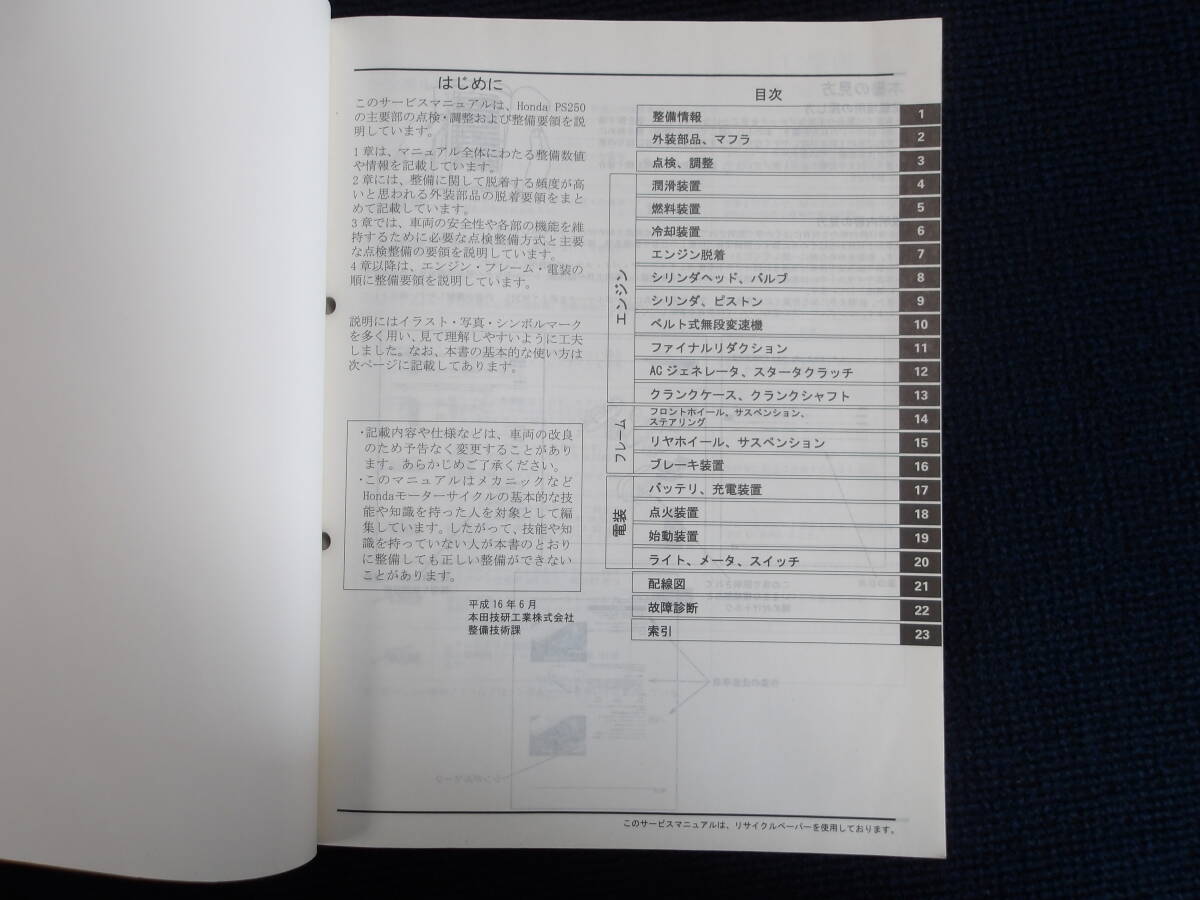 はじめに
このサービスマニュアルは、Honda PS250
の主要部の点検・調整および整備要領を説
明しています。
1章は、マニュアル全体にわたる整備数値
や情報を記載しています。
2章には、整備に関して脱着する頻度が高
いと思われる外装部品の脱着要領をまと
めて記載しています。
3章では、車両の安全性や各部の機能を維
持するために必要な点検整備方式と主要
な点検整備の要領を説明しています。
4章以降は、エンジン・フレーム・電装の
順に整備要領を説明しています。
説明にはイラスト・写真・シンボルマーク
を多く用い、見て理解しやすいように工夫
しました。なお、本書の基本的な使い方は
次ページに記載してあります。
・記載内容や仕様などは、車両の改良
のため予告なく変更することがあり
ます。あらかじめご了承ください。
・このマニュアルはメカニックなど
Hondaモーターサイクルの基本的な技
能や知識を持った人を対象として編
集しています。したがって、技能や知
識を持っていない人が本書のとおり
に整備しても正しい整備ができない
ことがあります。
平成16年6月
本田技研工業株式会社
整備技術課
目次
整備情報 1
外装部品、マフラ 2
点検、調整 3
エンジン
潤滑装置 4
燃料装置 5
冷却装置 6
エンジン脱着 7
シリンダヘッド、バルブ 8
シリンダ、ピストン 9
ベルト式無段変速機 10
ファイナルリダクション 11
ACジェネレータ、スタータクラッチ 12
クランクケース、クランクシャフト 13
フレーム
フロントホイール、サスペンション、
ステアリング 14
リヤホイール、サスペンション 15
ブレーキ装置 16
電装
バッテリ、充電装置 17
点火装置 18
始動装置 19
ライト、メータ、スイッチ 20
配線図 21
故障診断 22
索引 23
このサービスマニュアルは、リサイクルペーパーを使用しております。